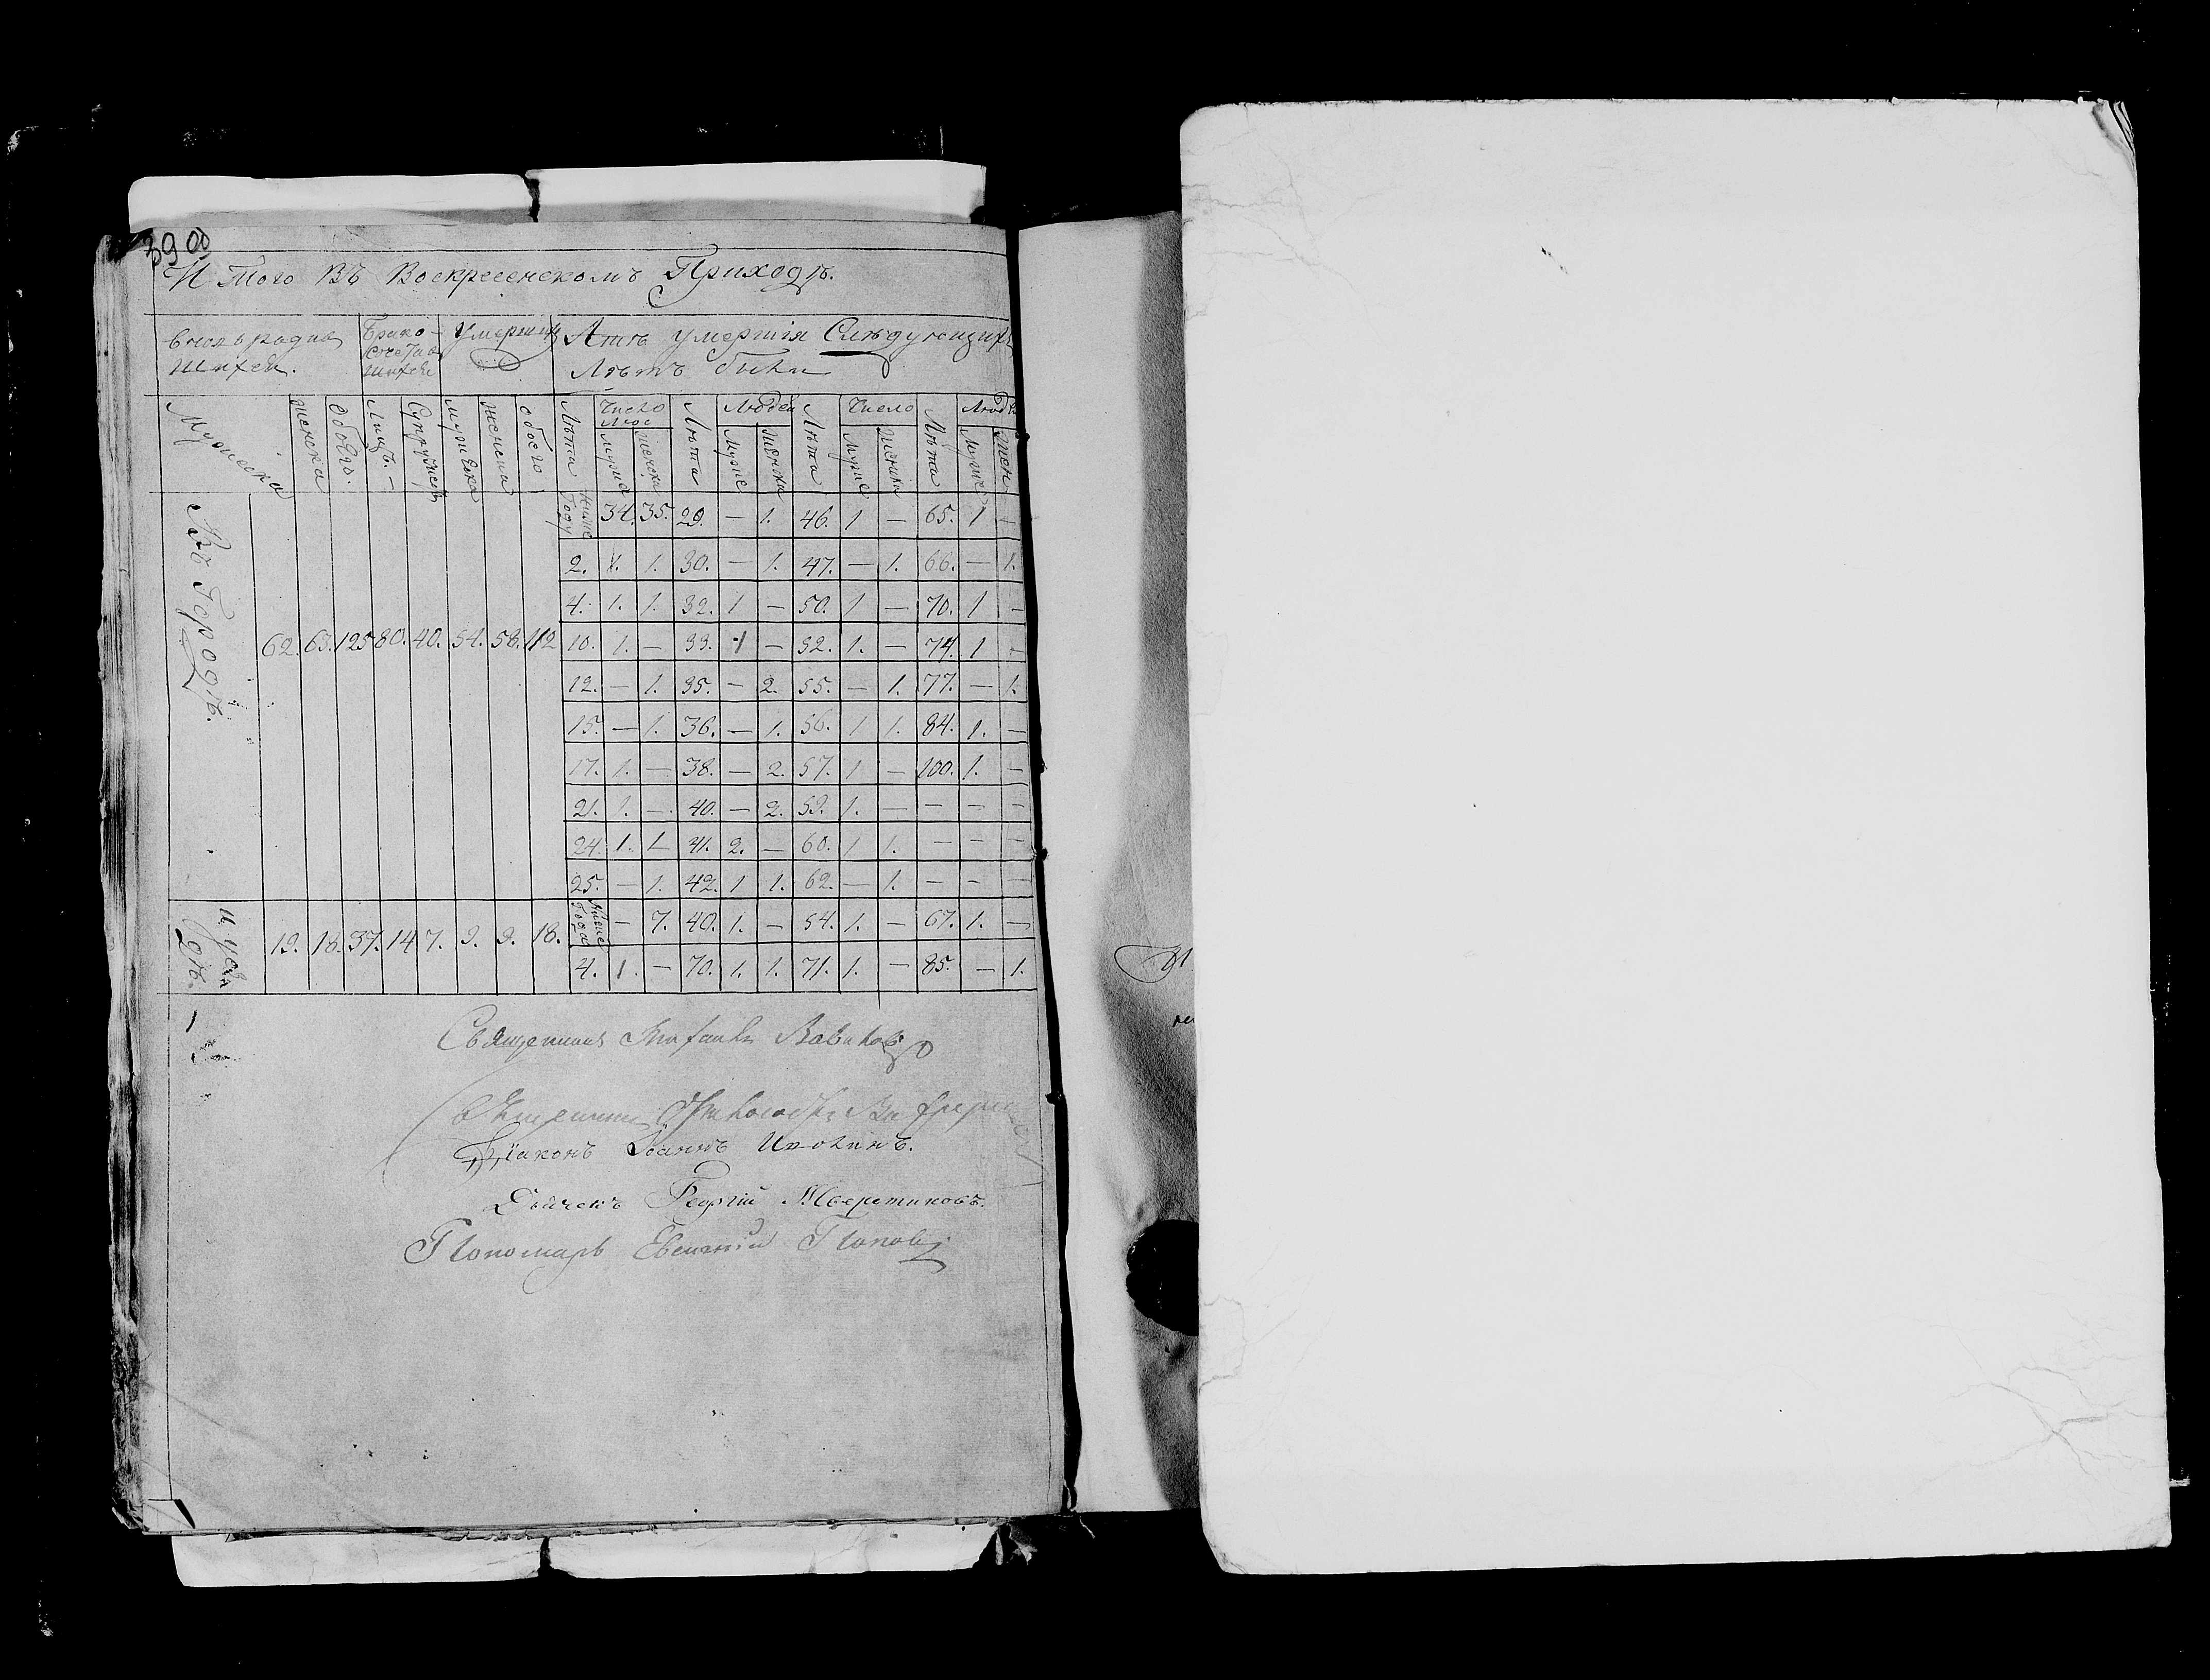 390
И того въ Воскресенскомъ Приходѣ.
Умерших Лѣтъ умершія Слѣдующихъ
Лѣтъ были
Мужеска Женска Обоего. Лицъ. Супружест Мужеска Женска Обоего Лѣта Число Люд Лѣта Людей Лѣта Число Лѣта Люд
Муже Женска Муже Женска Муже Женска Муже Жен
Въ Городѣ. 62. 63. 125 80. 40. 54. 58. 112
Ниже Году 34. 35. 29. — 1. 46. 1 — 65. 1 —
2. 1. 1. 30. — 1. 47. — 1. 66. — 1.
4. 1. 1. 32. 1 — 50. 1 — 70. 1 —
10. 1. — 33. 1 — 52. 1. — 74. 1 —
12. — 1. 35. — 2. 55. — 1. 77. — 1.
15. — 1. 36. — 1. 56. 1 1. 84. 1. —
17. 1. — 38. — 2. 57. 1 — 100. 1. —
21. 1. — 40. — 2. 59. 1. — — — —
24. 1. 1 41. 2. — 60. 1 1. — — —
25. — 1. 42. 1 1. 62. — 1. — — —
и уез дѣ. 19. 18. 37. 14 7. 9. 9. 18. Ниже Года — 7. 40. 1. — 54. 1. — 67. 1. —
4. 1. — 70. 1. 1. 71. 1. — 85. — 1.
Священникъ
Діаконъ Іоаннъ
Дьячекъ Георгій
Пономарь Евгеній Поповъ